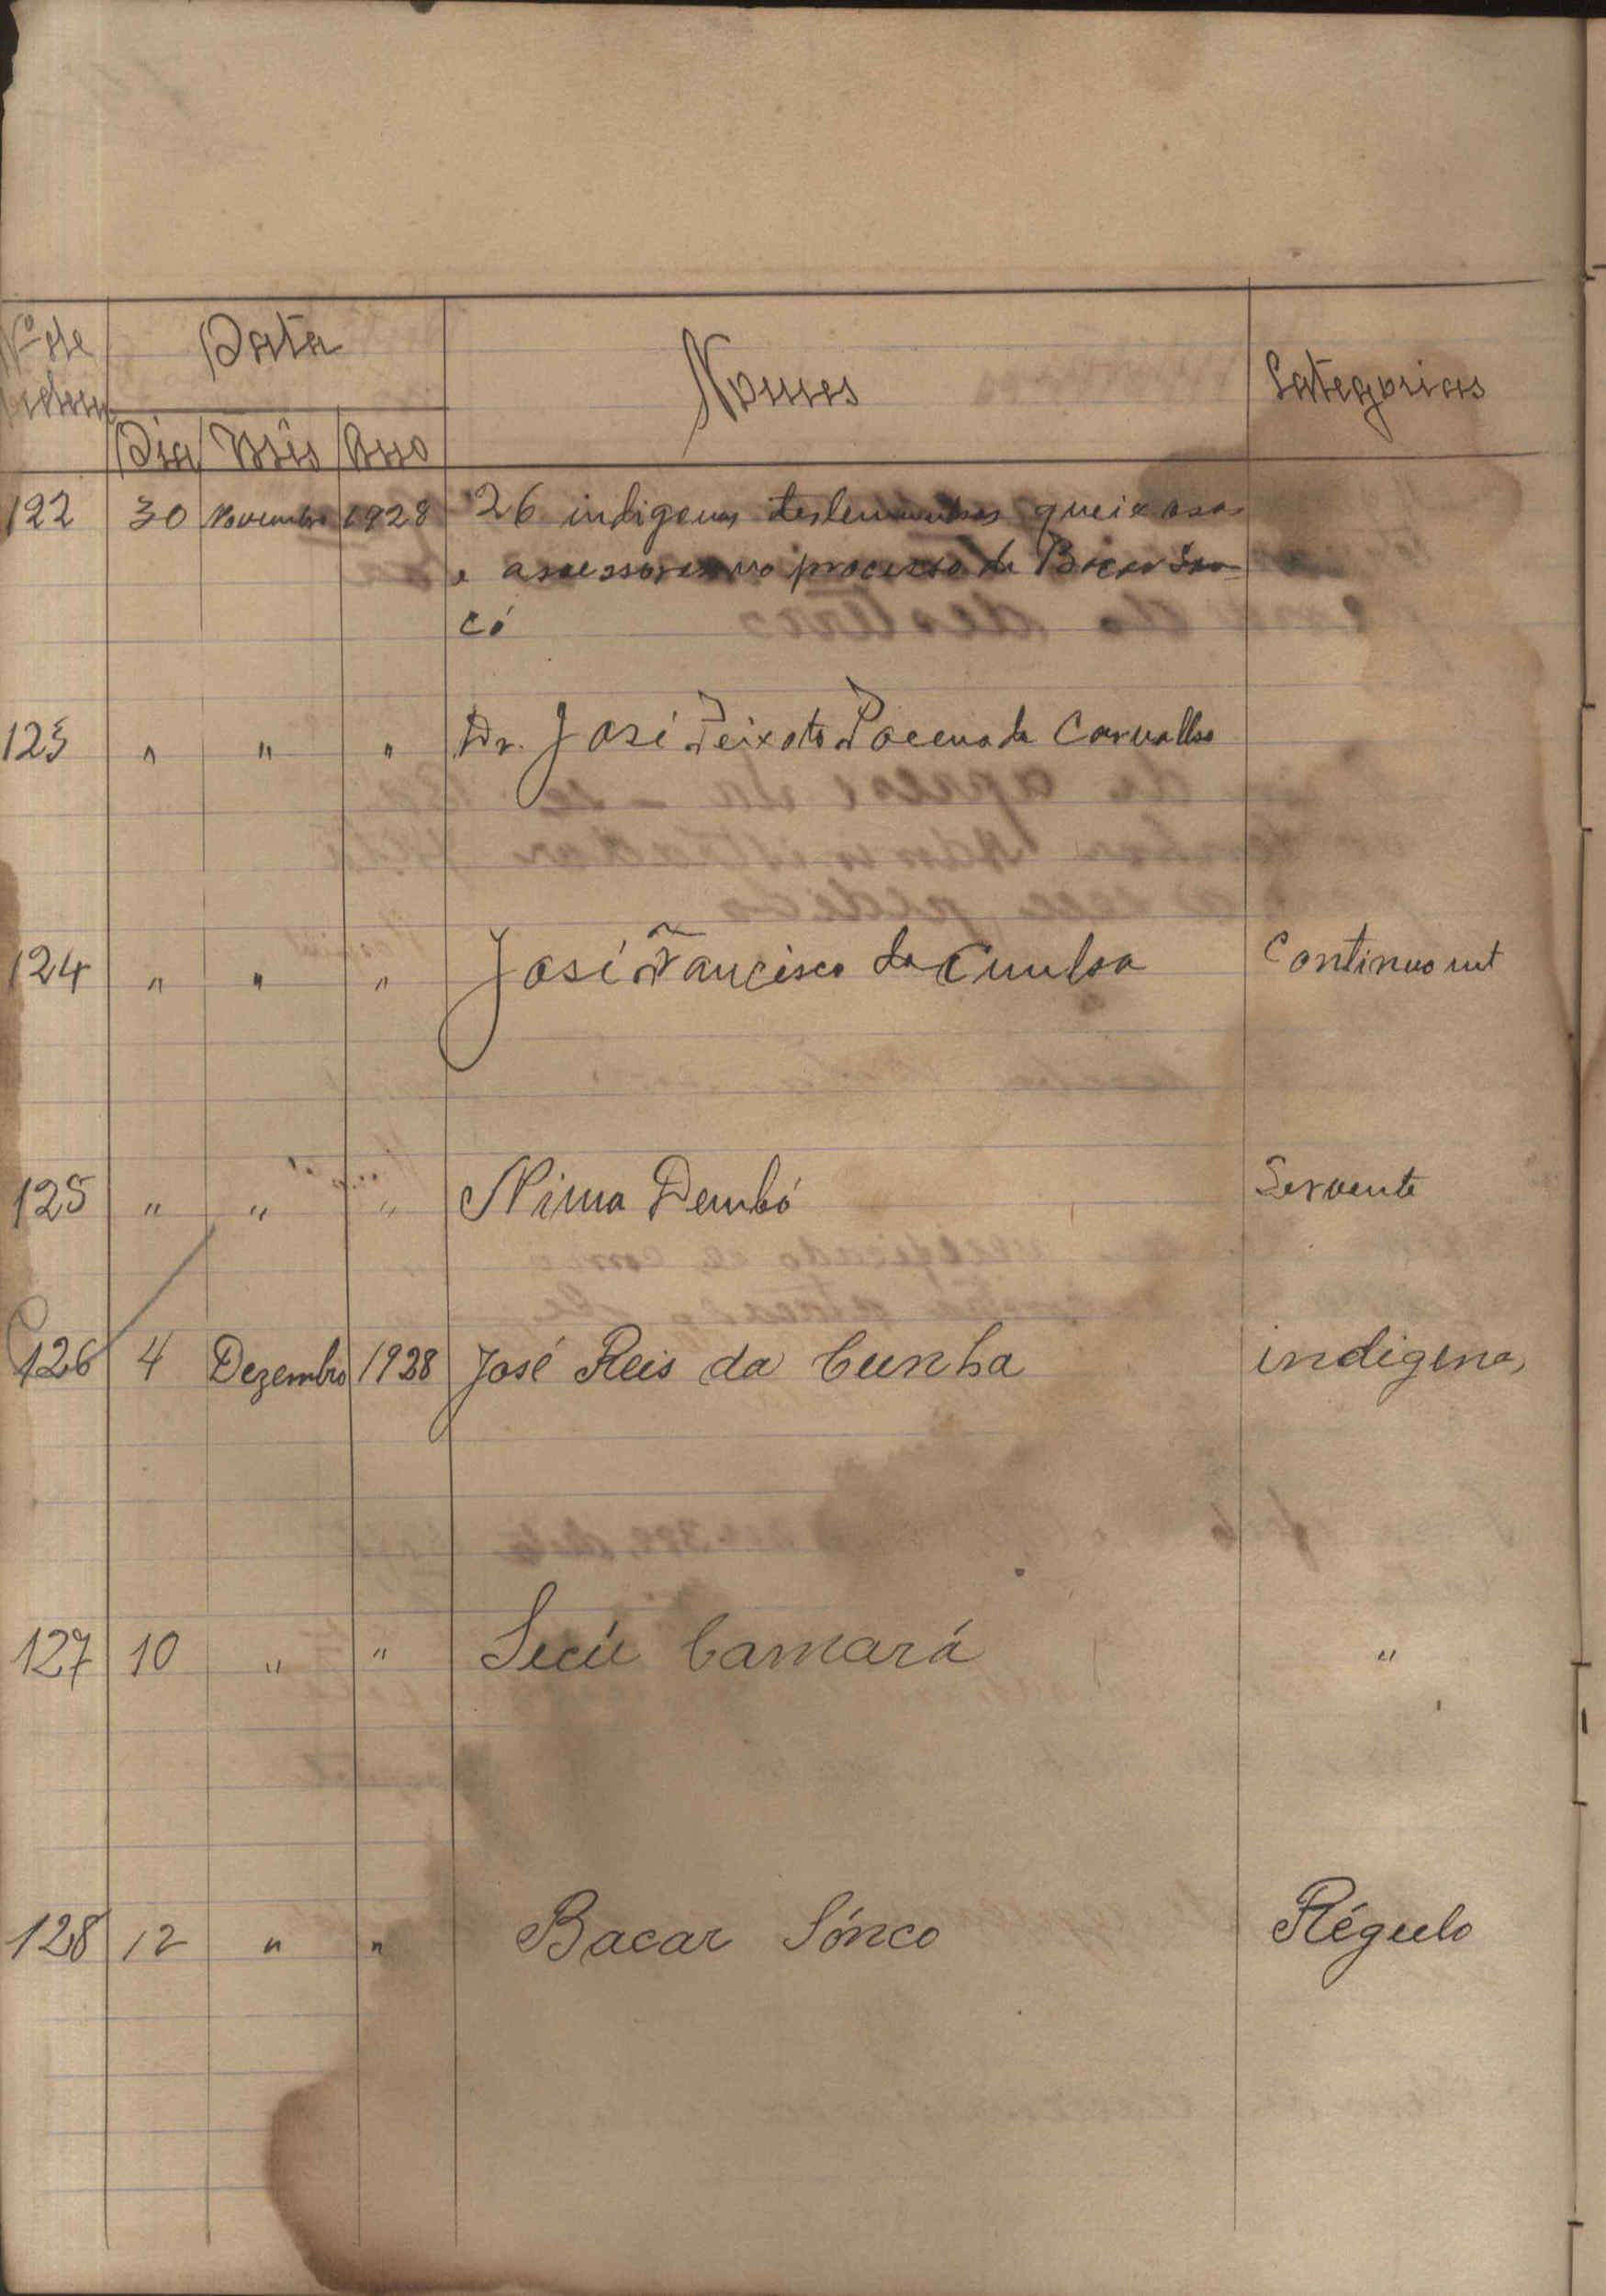 Nº de
ordem
Data
Nomes
Categorias
Dia Mês Ano
122 30 Novembro 1928 26 indigenas testemunhas queixosos
e assessores no processo de Bacar Son-
có
123 " " " Dr. José Teixoto de Carvalho
124 " " " José Francisco da Cunha Continuo int
125 " " " Nima Dembó Servente
126 4 Dezembro 1928 José Reis da Cunha indigena,
127 10 " " Secú Camará "
128 12 " " Bacar Sónco Régulo